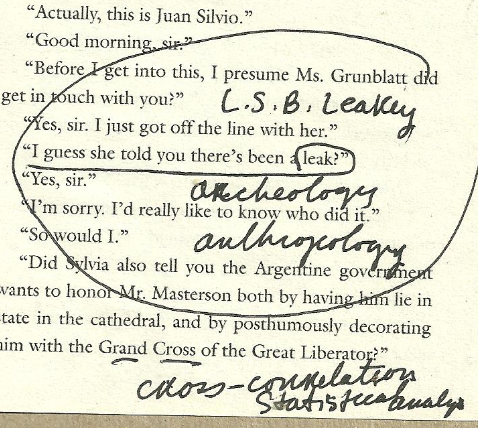 “Actually, this is Juan Silvio.”
“Good morning, sir.”
“Before I get into this, I presume Ms. Grunblatt did
get in touch with you?”
L.S.B. Leakey
“Yes, sir. I just got off the line with her.”
“I guess she told you there's been a leak?”
“Yes, sir.”
archeology
“I'm sorry. I'd really like to know who did it.”
“So would I.”
anthropology
“Did Sylvia also tell you the Argentine government
wants to honor Mr. Masterson both by having him lie in
state in the cathedral, and by posthumously decorating
him with the Grand Cross of the Great Liberator?”
cross-correlation
statistical analys